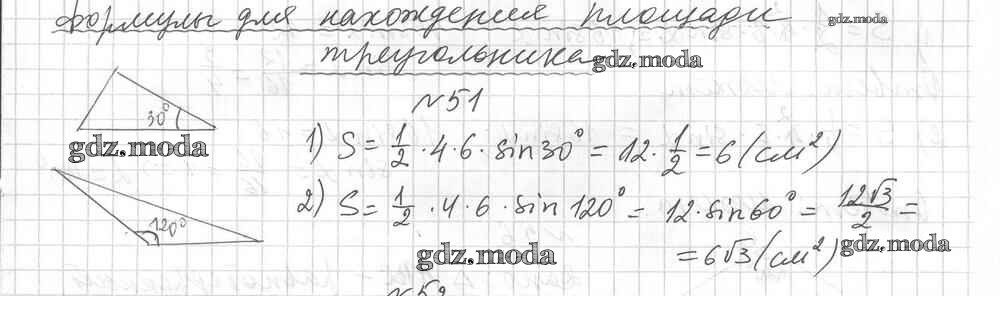 Формулы для нахождения площади gdz.moda
треугольника gdz.moda
№51
30°
gdz.moda
1) S = 1/2 · 4 · 6 · sin 30° = 12 · 1/2 = 6 (см²)
120°
2) S = 1/2 · 4 · 6 · sin 120° = 12 · sin 60° = 12√3/2 =
= 6√3 (см²) gdz.moda
gdz.moda